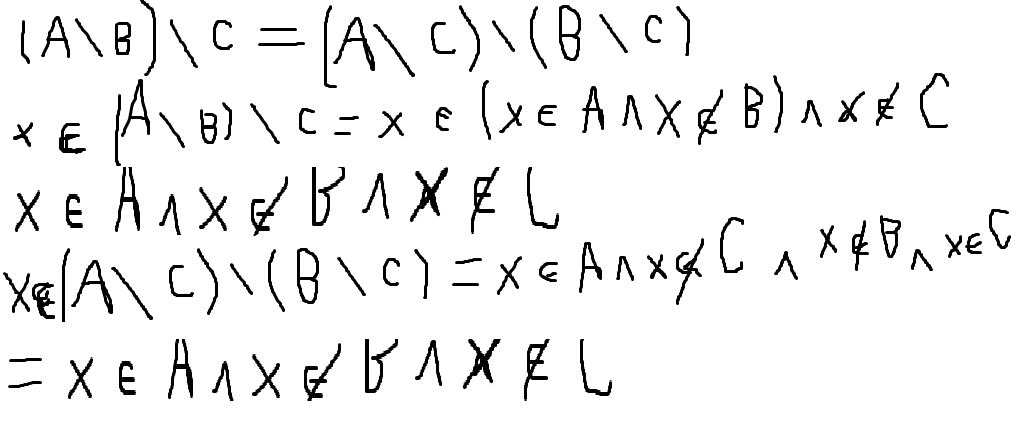 (A\B)\C=(A\C)\(B\C)
x∈(A\B)\C=x∈(x∈A∧x∉B)∧x∉C
x∈A∧x∉B∧x∉C
x∈(A\C)\(B\C)=x∈A∧x∉C∧x∉B∧x∈C
=x∈A∧x∉B∧x∉C